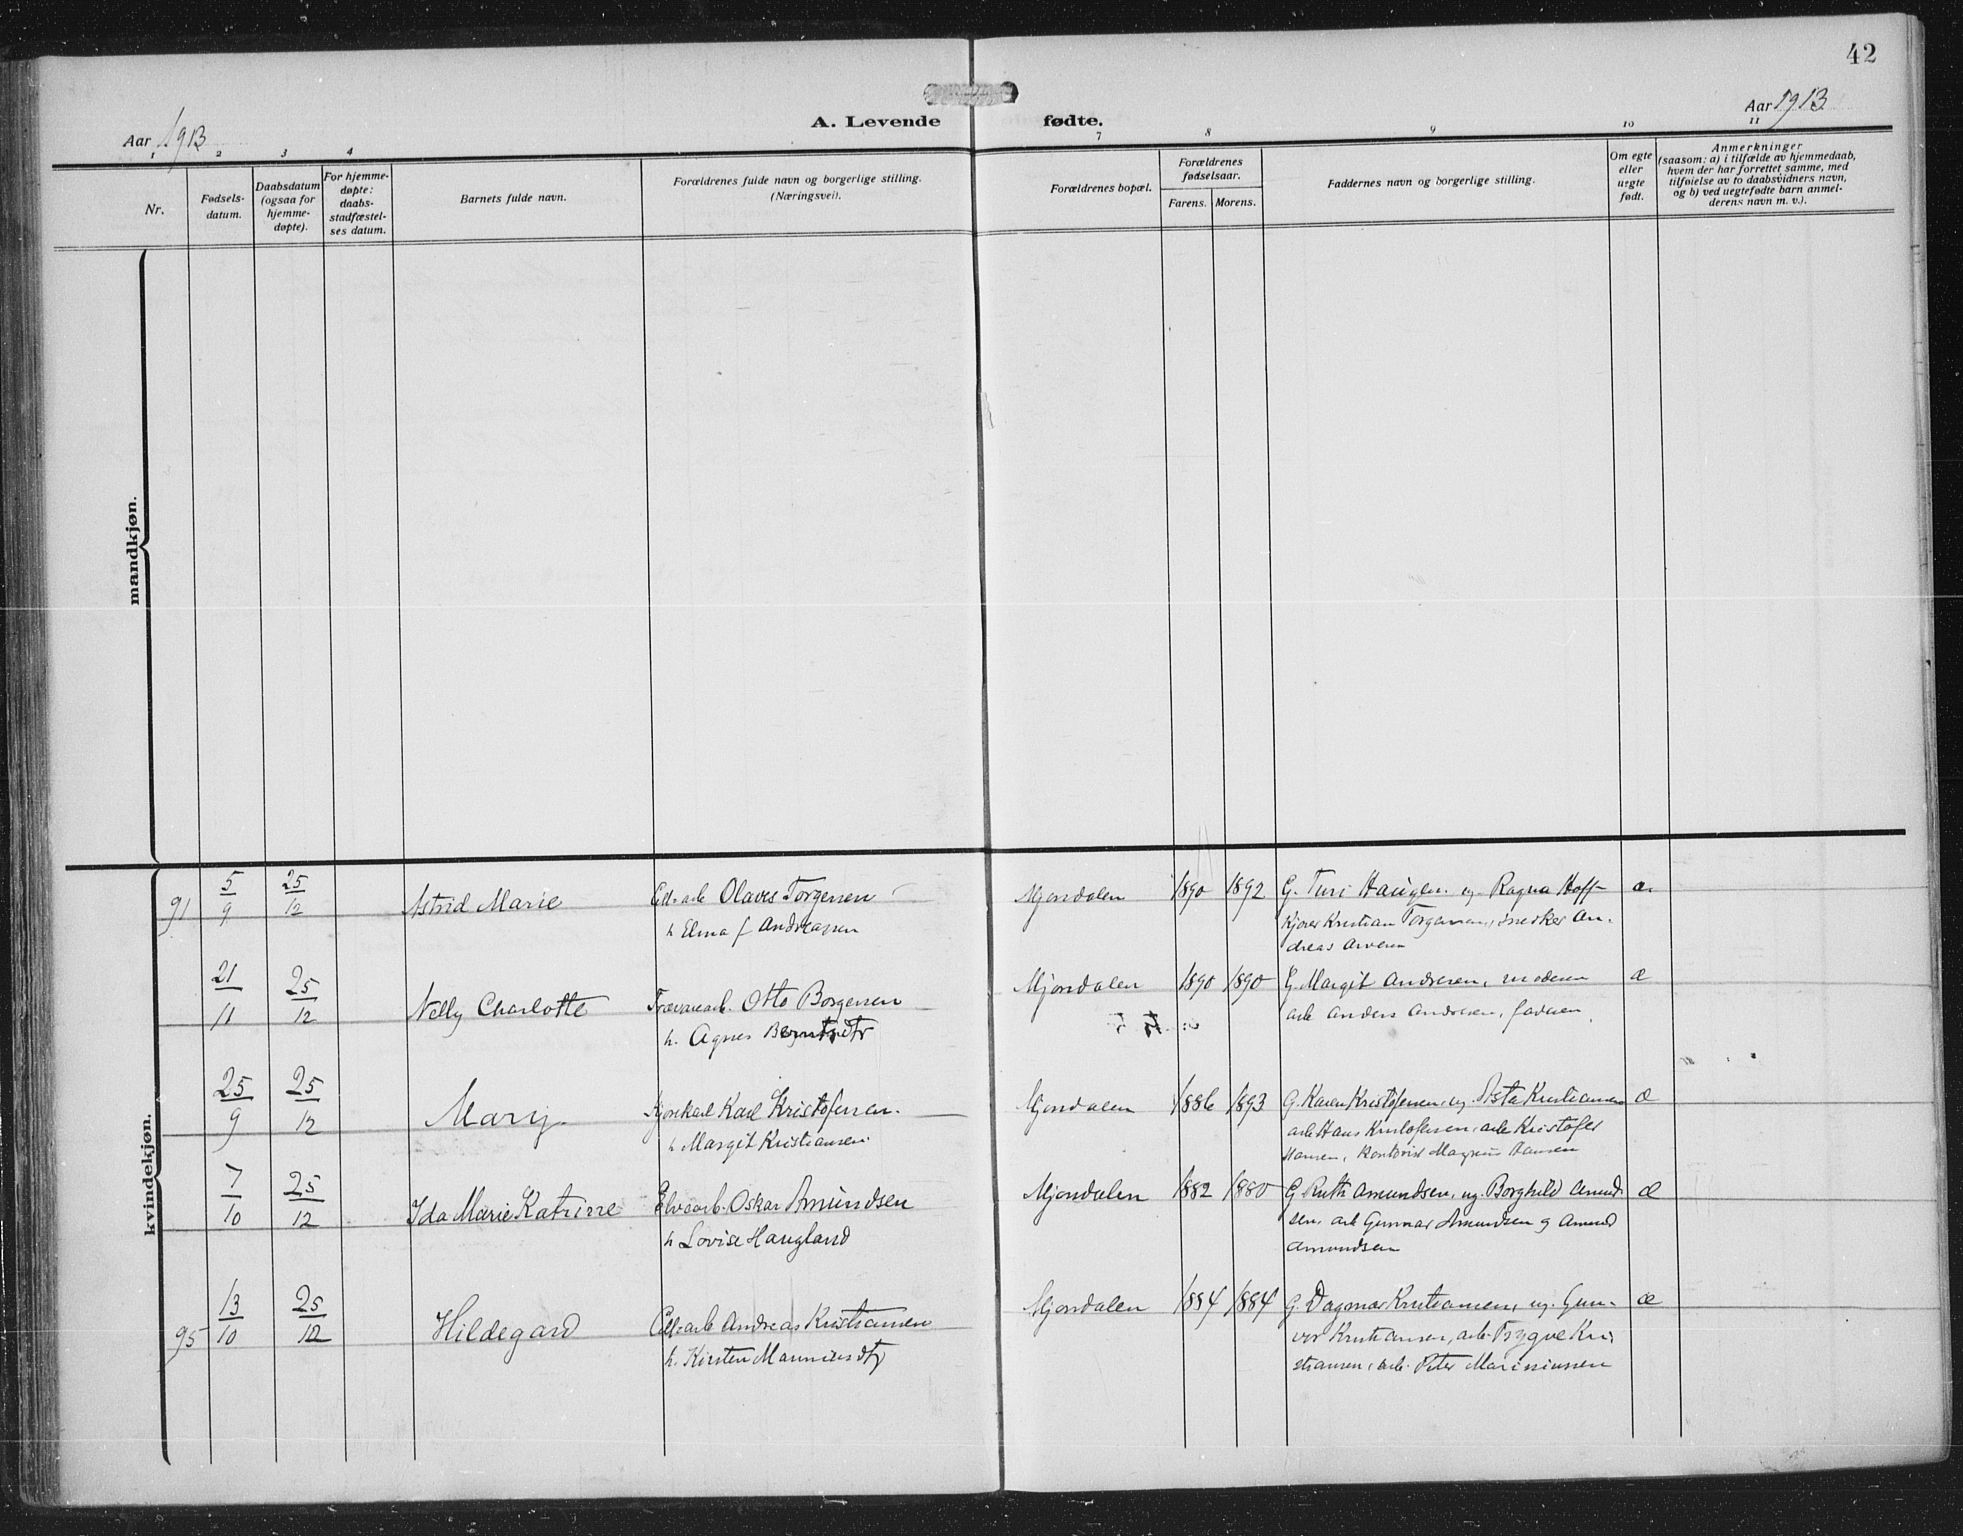 42
Aar 1913
A. Levende fødte.
Aar 1913
1 2 3 4 7 8 9 10 11
Nr.
Fødsels-
datum.
Daabsdatum
(ogsaa for
hjemme-
døpte).
For hjemme-
døpte:
daabs-
stadfæstel-
ses datum.
Barnets fulde navn.
Forældrenes fulde navn og borgerlige stilling.
(Næringsvei).
Forældrenes bopæl.
Forældrenes
fødselsaar.
Farens. Morens.
Faddernes navn og borgerlige stilling.
Om egte
eller
uegte
født.
Anmerkninger
(saasom: a) i tilfælde av hjemmedaab,
hvem der har forrettet samme, med
tilføielse av to daabsvidners navn,
og b) ved uegtefødte barn anmel-
derens navn m. v.).
mandkjøn.
kvindekjøn.
91 5/9 25/12 Astrid Marie
Cell. arb Olaves Torgersen
h Elma f Andreassen
Mjøndalen 1890 1892
G. Turi Haugen. ug Ragna Hoff
Kjører Kristian Torgersen, snedker An-
dreas
æ
21/11 25/12 Nelly Charlotte
Trævarearb. Otto Borgersen
h. Agnes Berntsdtr
Mjøndalen 1890 1890
G. Margit Andresen, moderen
arb Anders Andresen, faderen
æ
25/9 25/12 Mary
Kjørekarl Karl Kristofersen
h Margit Kristiansen
Mjøndalen 1886 1893
G. Karen Kristofersen, ug. Asta Kristiansen
arb Hans Kristofersen, arb Kristofer
Hansen, Kontorist Magnus Hansen
æ
7/10 25/12 Ida Marie Katrine
Elvearb. Oskar Amundsen
h Lovise Haugland
Mjøndalen 1882 1880
G. Ruth Amundsen, ug. Borghild Amund-
sen, arb Gunnar Amundsen og Amund
Amundsen
æ
95 13/10 25/12 Hildegard
Cell. arb Andreas Kristiansen
h. Kirsten
Mjøndalen 1884 1884
G. Dagmar Kristiansen, ug. Gun-
vor Kristiansen, arb. Trygve Kri-
stiansen, arb. Peter Marinussen
æ